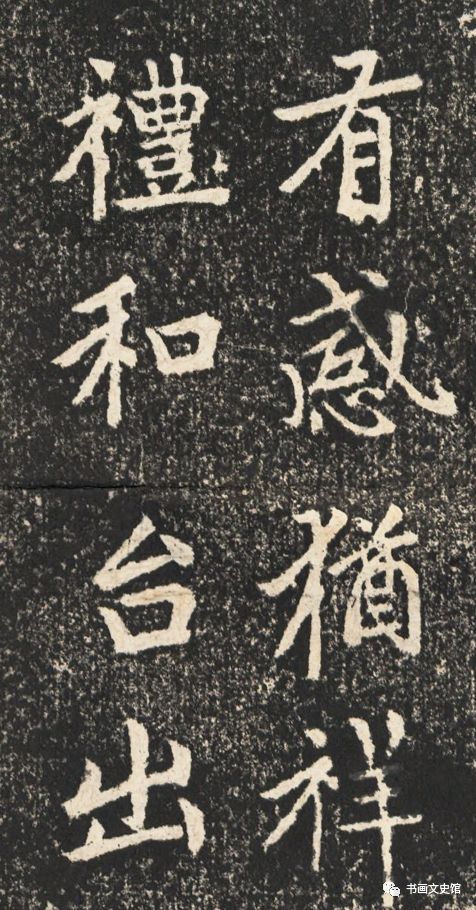 有感猶祥
禮和台出
书画文史馆